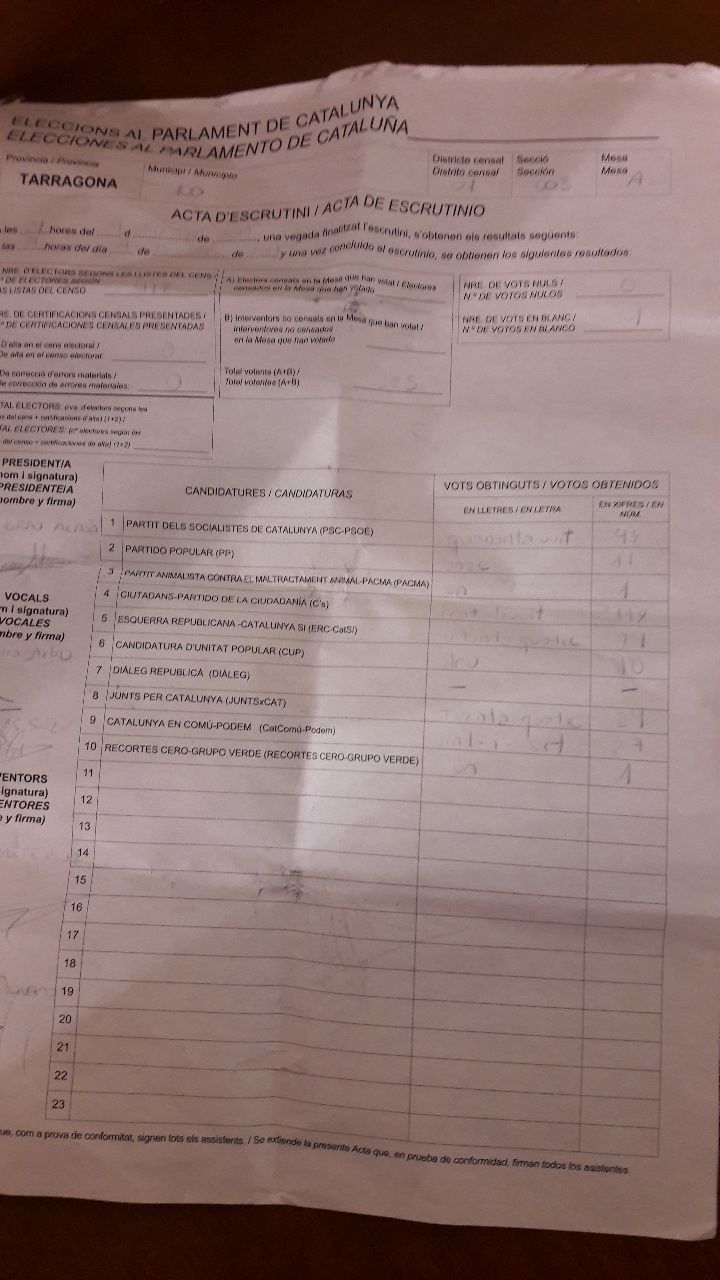 ELECCIONS AL PARLAMENT DE CATALUNYA
ELECCIONES AL PARLAMENTO DE CATALUÑA
Província / Provincia
TARRAGONA
Municipi / Municipio
Districte censal
Distrito censal
01
Secció
Sección
003
Mesa
Mesa
A
ACTA D'ESCRUTINI / ACTA DE ESCRUTINIO
les ........ hores del ........ d ........ de ........, una vegada finalitzat l'escrutini, s'obtenen els resultats següents:
las ........ horas del día ........ de ........ de ........ y una vez concluido el escrutinio, se obtienen los siguientes resultados:
NRE. D'ELECTORS SEGONS LES LLISTES DEL CENS /
º DE ELECTORES SEGÚN
AS LISTAS DEL CENSO
RE. DE CERTIFICACIONS CENSALS PRESENTADES /
º DE CERTIFICACIONES CENSALES PRESENTADAS
D'alta en el cens electoral /
De alta en el censo electoral:
De correcció d'errors materials /
De corrección de errores materiales:
0
TAL ELECTORS: (nre. d'electors segons les
s del cens + certificacions d'alta) (1+2) /
TAL ELECTORES: (nº electores según las
del censo + certificaciones de alta) (1+2)
A) Electors censats en la Mesa que han votat / Electores
censados en la Mesa que han votado
B) Interventors no censats en la Mesa que han votat /
Interventores no censados
en la Mesa que han votado
Total votants (A+B) /
Total votantes (A+B)
NRE. DE VOTS NULS /
N.º DE VOTOS NULOS
0
NRE. DE VOTS EN BLANC /
N.º DE VOTOS EN BLANCO
1
PRESIDENT/A
nom i signatura)
PRESIDENTE/A
nombre y firma)
VOCALS
m i signatura)
VOCALES
mbre y firma)
VENTORS
ignatura)
ENTORES
e y firma)
CANDIDATURES / CANDIDATURAS
VOTS OBTINGUTS / VOTOS OBTENIDOS
EN LLETRES / EN LETRA
EN XIFRES / EN NÚM.
1 PARTIT DELS SOCIALISTES DE CATALUNYA (PSC-PSOE)
2 PARTIDO POPULAR (PP) 11
3 PARTIT ANIMALISTA CONTRA EL MALTRACTAMENT ANIMAL-PACMA (PACMA) un 1
4 CIUTADANS-PARTIDO DE LA CIUDADANÍA (C's)
5 ESQUERRA REPUBLICANA -CATALUNYA SÍ (ERC-CatSÍ)
6 CANDIDATURA D'UNITAT POPULAR (CUP)
7 DIÀLEG REPUBLICÀ (DIÀLEG) — —
8 JUNTS PER CATALUNYA (JUNTSxCAT)
9 CATALUNYA EN COMÚ-PODEM (CatComú-Podem)
10 RECORTES CERO-GRUPO VERDE (RECORTES CERO-GRUPO VERDE) un 1
11
12
13
14
15
16
17
18
19
20
21
22
23
ue, com a prova de conformitat, signen tots els assistents. / Se extiende la presente Acta que, en prueba de conformidad, firman todos los asistentes.